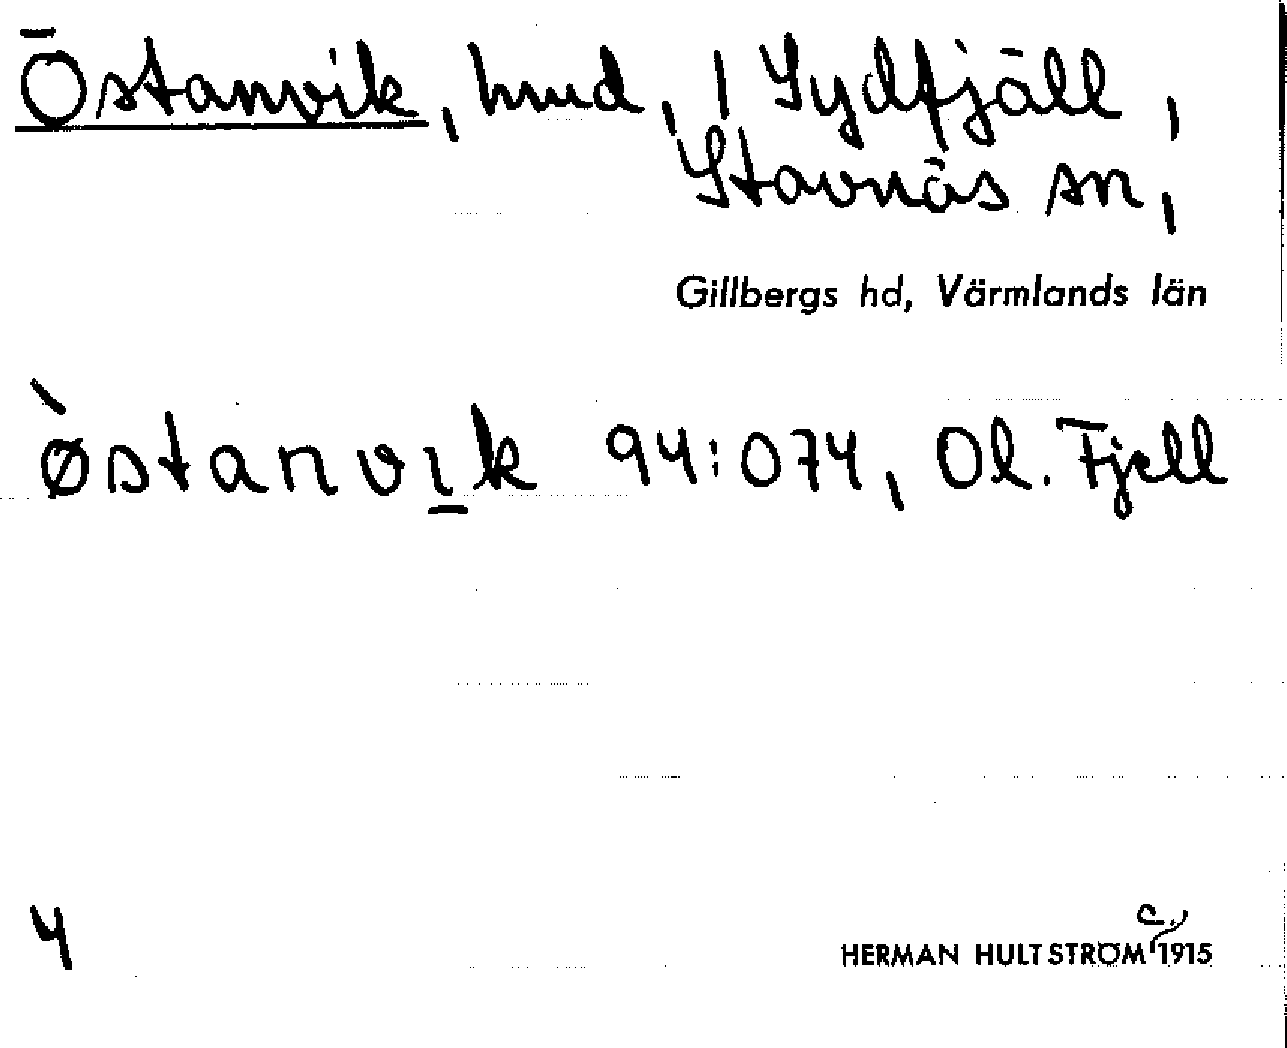 Östanvik, hmd, 1 Sydfjäll,
Stavnäs sn,
Gillbergs hd, Värmlands län
ò̸stanvı̠k 94:074, Ol. Fjell
4
C.
HERMAN HULTSTRÖM 1915